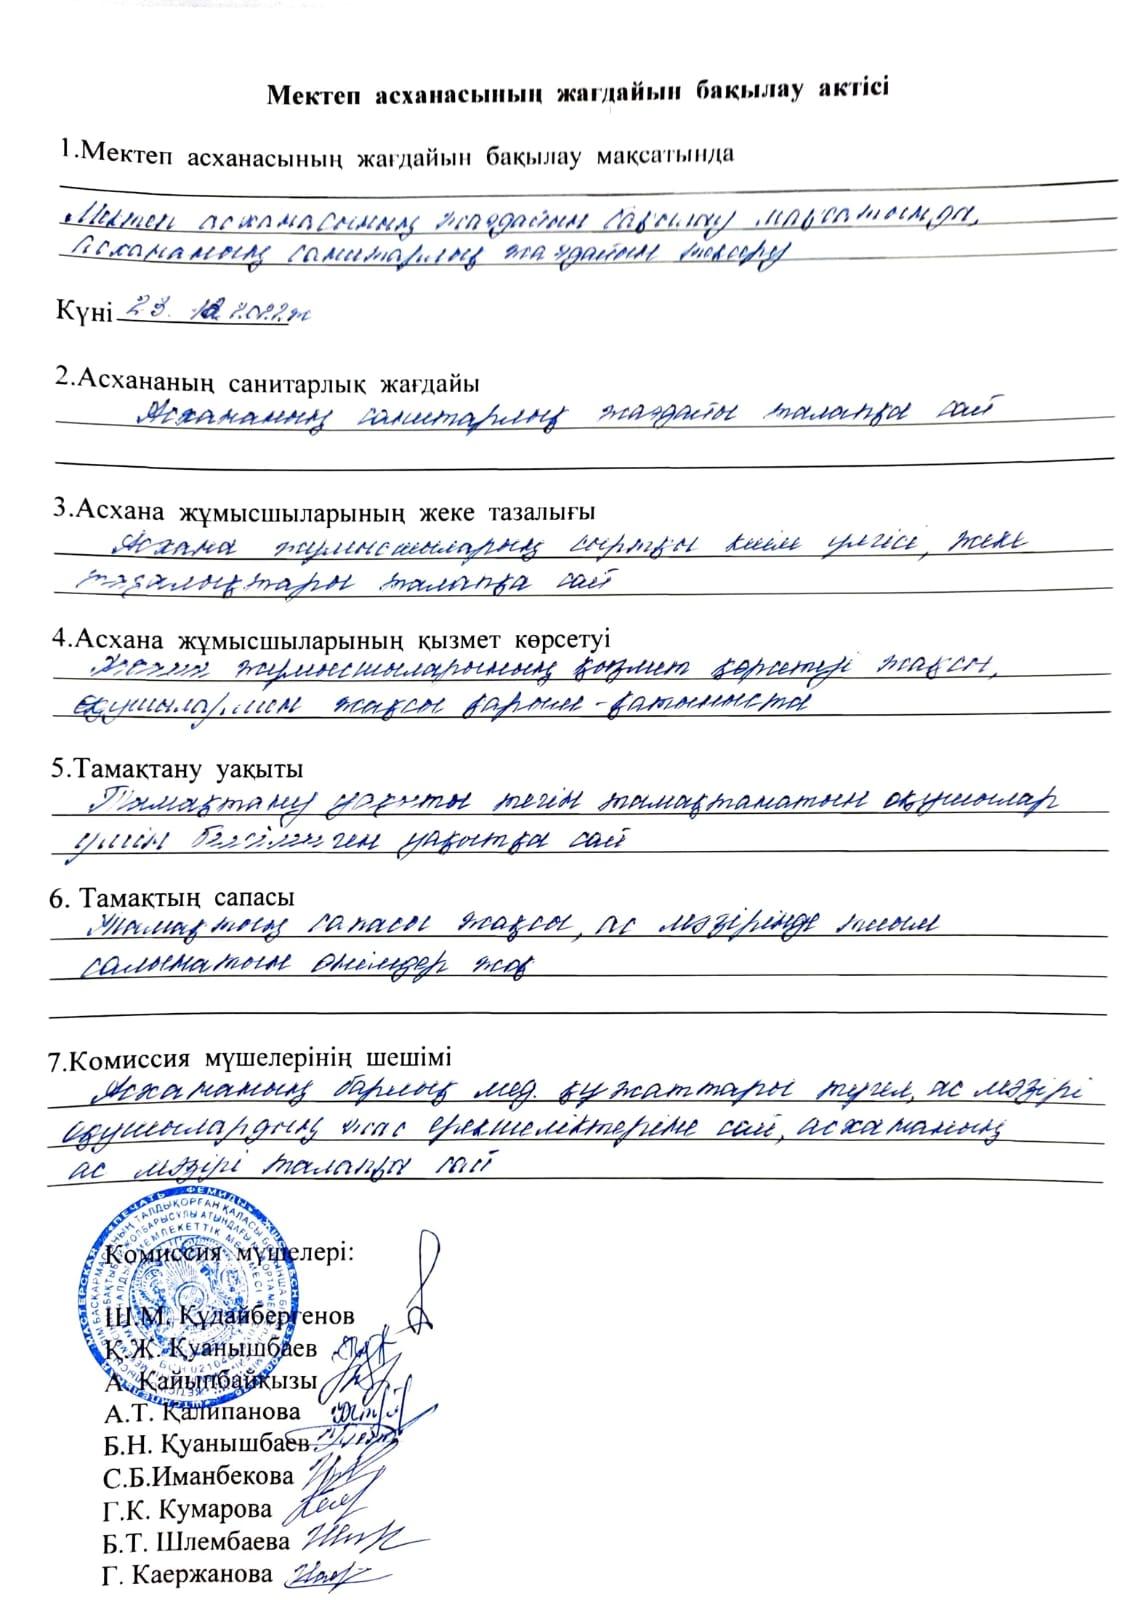 Мектеп асханасының жағдайын бақылау актісі
1.Мектеп асханасының жағдайын бақылау мақсатында
Мектеп асханасының жағдайын бақылау мақсатында,
асхананың санитарлық жағдайын тексеру
Күні 23. 12. 2022ж
2.Асхананың санитарлық жағдайы
Асхананың санитарлық жағдайы талапқа сай
3.Асхана жұмысшыларының жеке тазалығы
Асхана жұмысшыларың сыртқы киім үлгісі, жеке
тазалықтары талапқа сай
4.Асхана жұмысшыларының қызмет көрсетуі
Асхана жұмысшыларының қызмет көрсетуі жақсы,
оқушылармен жақсы қарым-қатыныста
5.Тамақтану уақыты
Тамақтану уақыты тегін тамақтанатын оқушылар
үшін белгіленген уақытқа сай
6. Тамақтың сапасы
Тамақтың сапасы жақсы, ас мәзірінде тиым
салынатын өнімдер жоқ
7.Комиссия мүшелерінің шешімі
Асхананың барлық мед. құжаттары түгел, ас мәзірі
оқушылардың жас ерекшеліктеріне сай, асхананың
ас мәзірі талапқа сай
Комиссия мүшелері:
Ш.М. Құдайбергенов
Қ.Ж. Қуанышбаев
А. Қайыпбайқызы
А.Т. Қалипанова
Б.Н. Қуанышбаев
С.Б.Иманбекова
Г.К. Кумарова
Б.Т. Шлембаева
Г. Каержанова